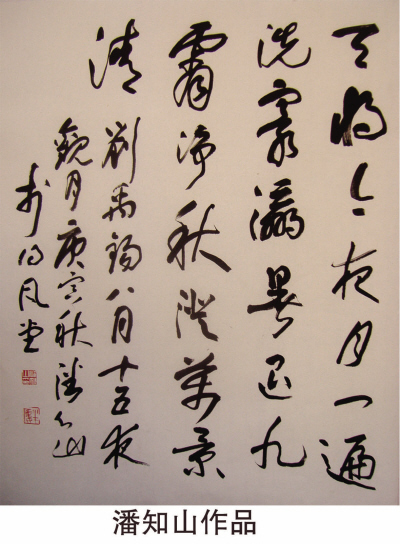 天将今夜月一遍
洗寰瀛暑退九
霄净秋澄萬景
清
劉禹錫八月十五夜
觀月庚寅秋潘知山
於风堂
潘知山作品